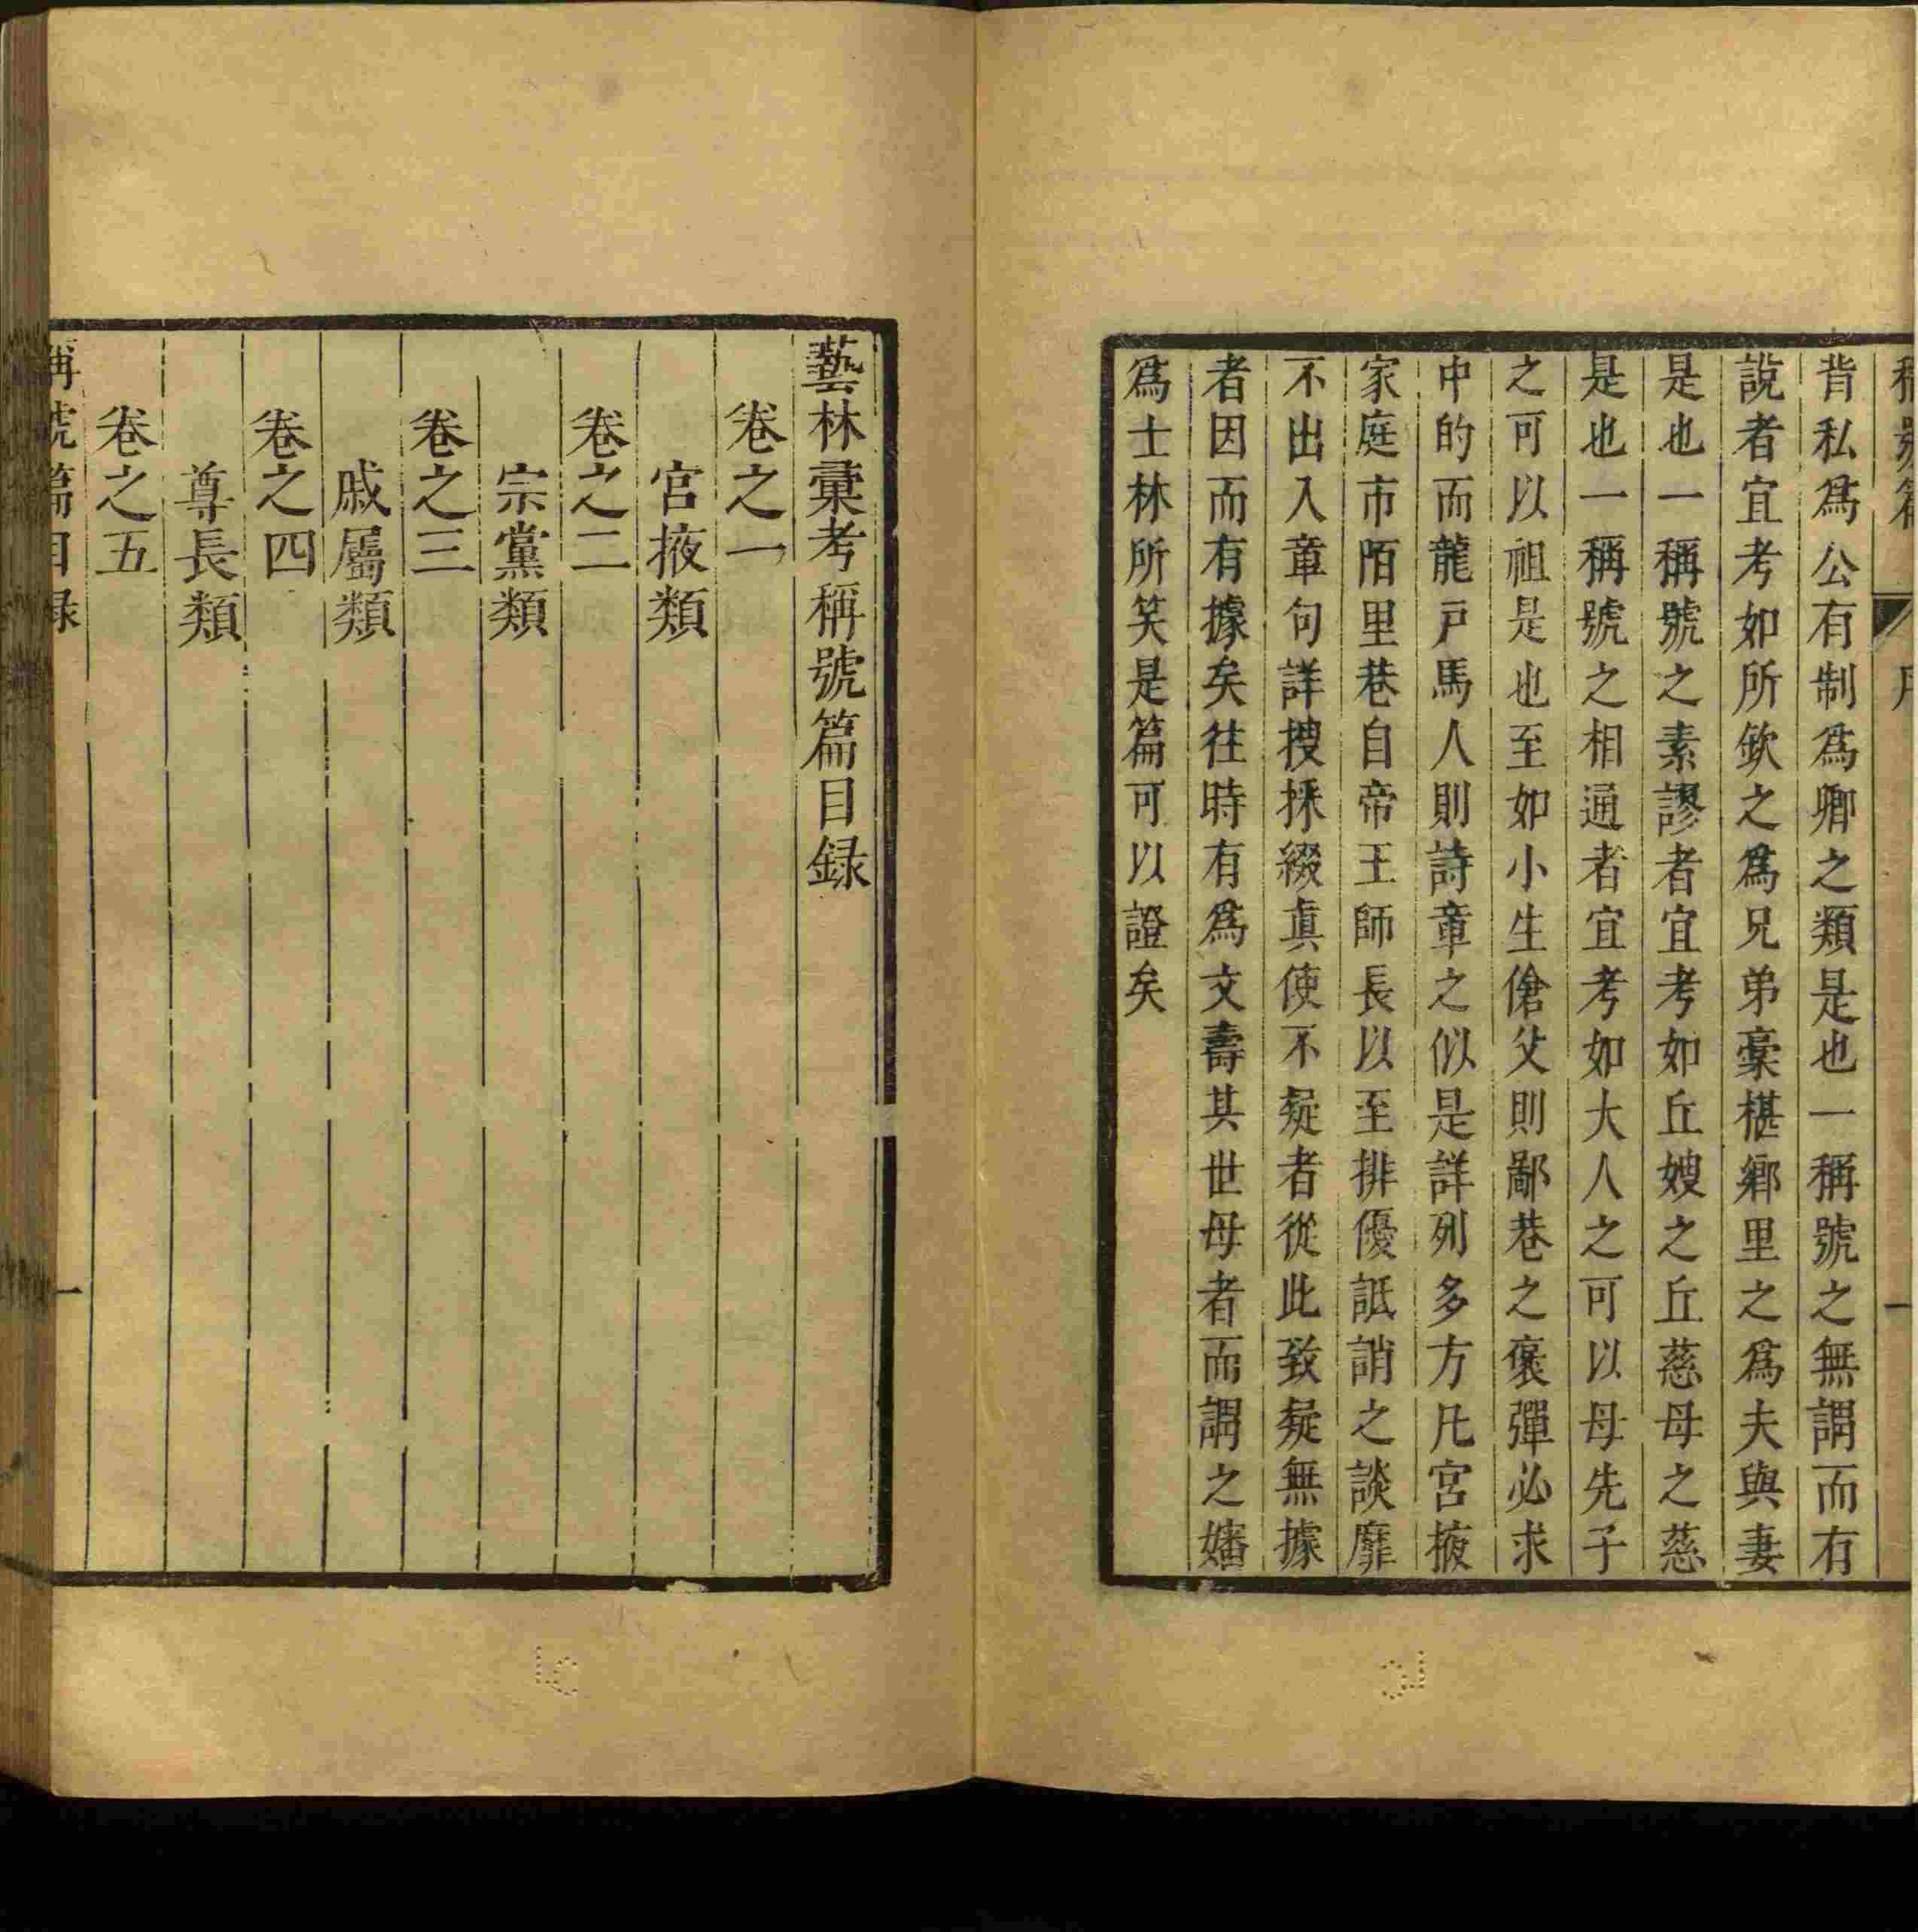 稱號篇
序
一
背私爲公有制爲卿之類是也一稱號之無謂而有
說者宜考如所欽之爲兄弟藁椹鄉里之爲夫與妻
是也一稱號之素謬者宜考如丘嫂之丘慈母之慈
是也一稱號之相通者宜考如大人之可以母先子
之可以祖是也至如小生傖父則鄙巷之褒彈必求
中的而龍戸馬人則詩章之似是詳列多方凡宮掖
家庭市陌里巷自帝王師長以至排優詆誚之談靡
不出入章句詳搜採綴眞使不疑者從此致疑無據
者因而有據矣往時有爲文壽其世母者而謂之嬸
爲士林所笑是篇可以證矣
藝林彙考稱號篇目録
卷之一
宮掖類
卷之二
宗黨類
卷之三
戚屬類
卷之四
尊長類
卷之五
稱號篇目録
一